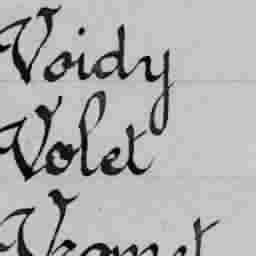 Voidy
Volet